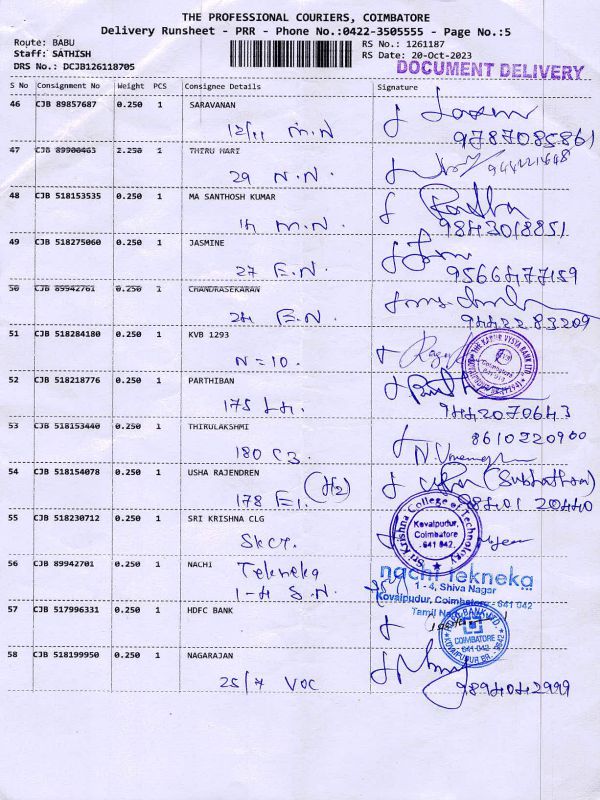 THE PROFESSIONAL COURIERS, COIMBATORE
Delivery Runsheet - PRR - Phone No.:0422-3505555 - Page No.:5
Route: BABU
Staff: SATHISH
DRS No.: DCJB126118705
RS No.: 1261187
RS Date: 20-Oct-2023
DOCUMENT DELIVERY
S No Consignment No Weight PCS Consignee Details Signature
46 CJB 89857687 0.250 1 SARAVANAN
12/11 M.N
9787085861
47 CJB 89900463 2.250 1 THIRU HARI
29 N.N.
48 CJB 518153535 0.250 1 MA SANTHOSH KUMAR
14 M.N
9843018851
49 CJB 518275060 0.250 1 JASMINE
27 E.N.
9566477159
50 CJB 89942761 0.250 1 CHANDRASEKARAN
24 E.N.
9442283209
51 CJB 518284180 0.250 1 KVB 1293
N=10.
THE KARUR VYSYA BANK LTD.
52 CJB 518218776 0.250 1 PARTHIBAN
175
9442070643
53 CJB 518153440 0.250 1 THIRULAKSHMI
180 C3.
8610220900
54 CJB 518154078 0.250 1 USHA RAJENDREN
178 E1. (H2)
98401 20440
55 CJB 518230712 0.250 1 SRI KRISHNA CLG
SKCT.
Sri Krishna College of Technology
Kovaipudur,
Coimbatore
641 042.
56 CJB 89942701 0.250 1 NACHI
Tekneka
1-4 S.N.
nachi tekneka
1 - 4, Shiva Nagar
Kovaipudur, Coimbatore - 641 042
Tamil
57 CJB 517996331 0.250 1 HDFC BANK
BANK LTD.
COIMBATORE
641 042
KOVAIPUDUR BR.
58 CJB 518199950 0.250 1 NAGARAJAN
25/7 VOC
9894042999